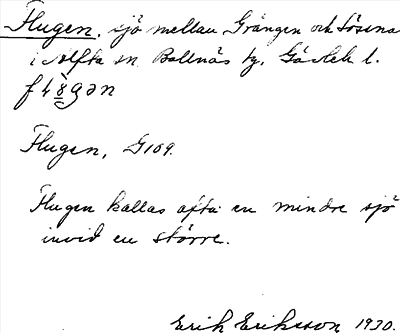 Flugen, sjö mellan Grängen och Lösena
i Alfta sn Bollnäs tg. Gävleb l.
Flugen, G109.
Flugen kallas ofta en mindre sjö
invid en större.
Erik Eriksson 1930.